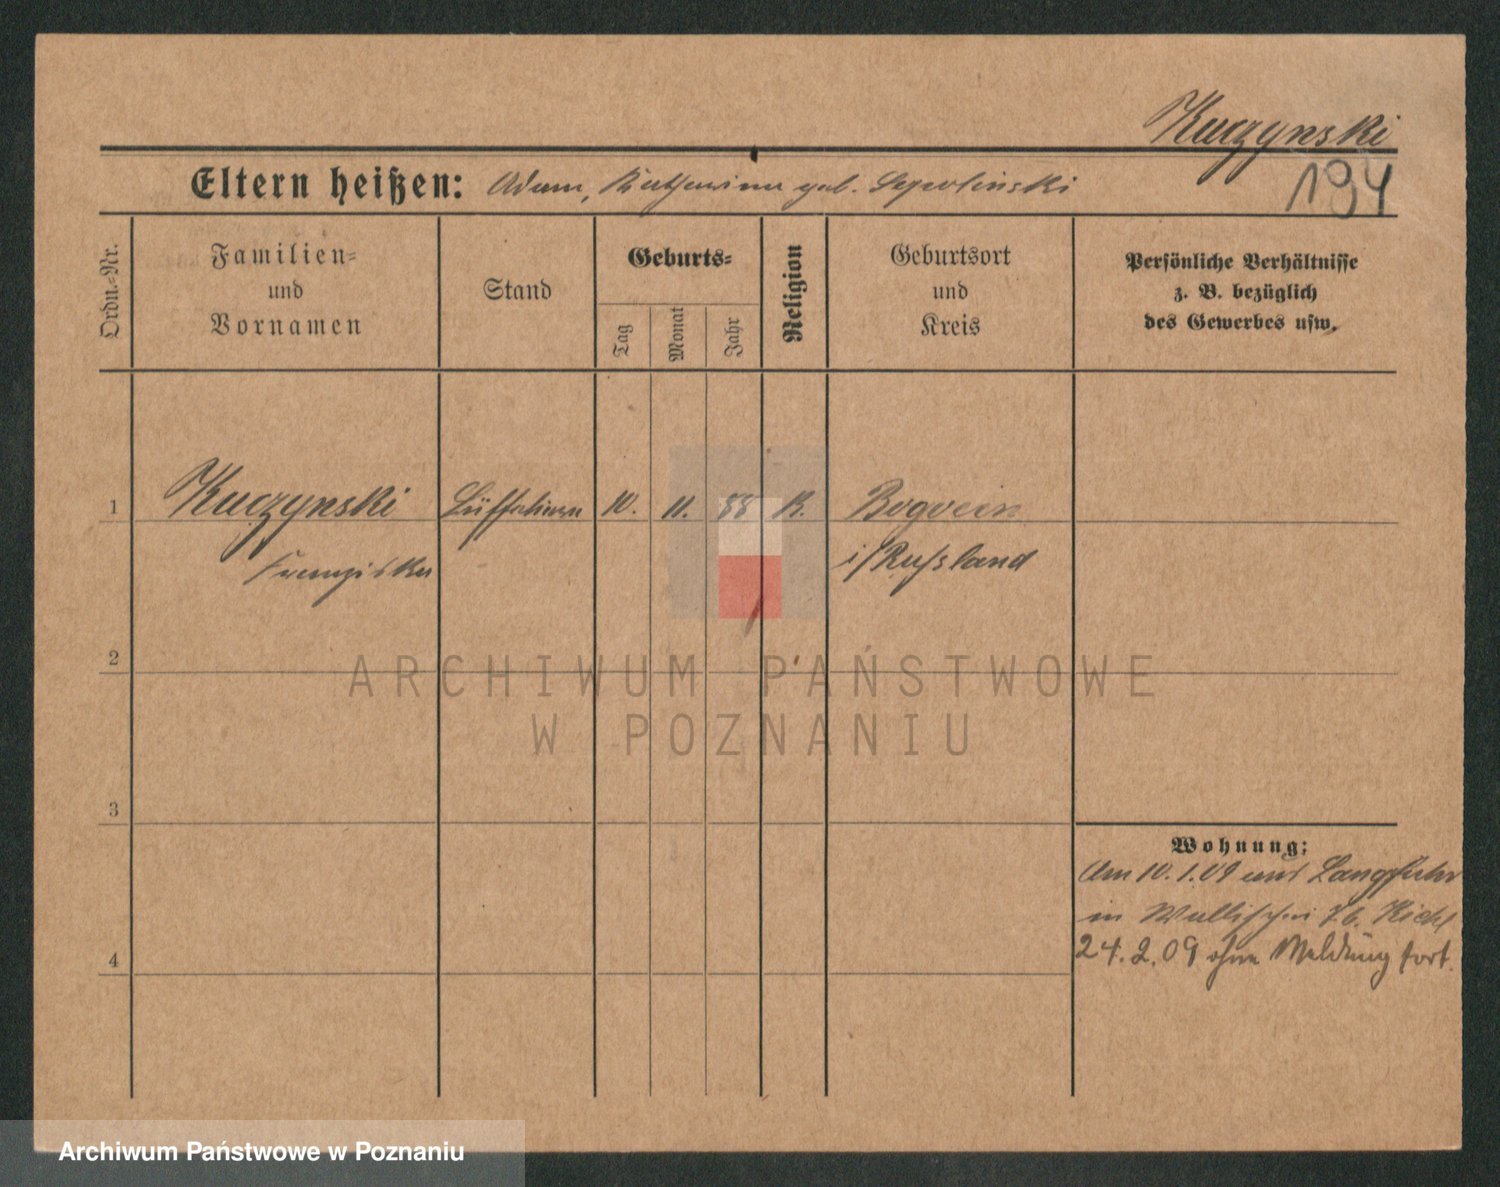 Kuczynski
194
Eltern heißen: Adam, Katharina geb.
Ordn.-Nr.
Familien-
und
Vornamen
Stand
Geburts-
Tag
Monat
Jahr
Religion
Geburtsort
und
Kreis
Persönliche Verhältnisse
z. B. bezüglich
des Gewerbes usw.
1 Kuczynski 10. 11. 88 K.
Franziska i/Russland
2
ARCHIWUM PAŃSTWOWE
W POZNANIU
3
Wohnung:
Am 10.1.09 aus Langfuhr
in Wallischei 76.
24.2.09 ohne Meldung fort.
4
Archiwum Państwowe w Poznaniu